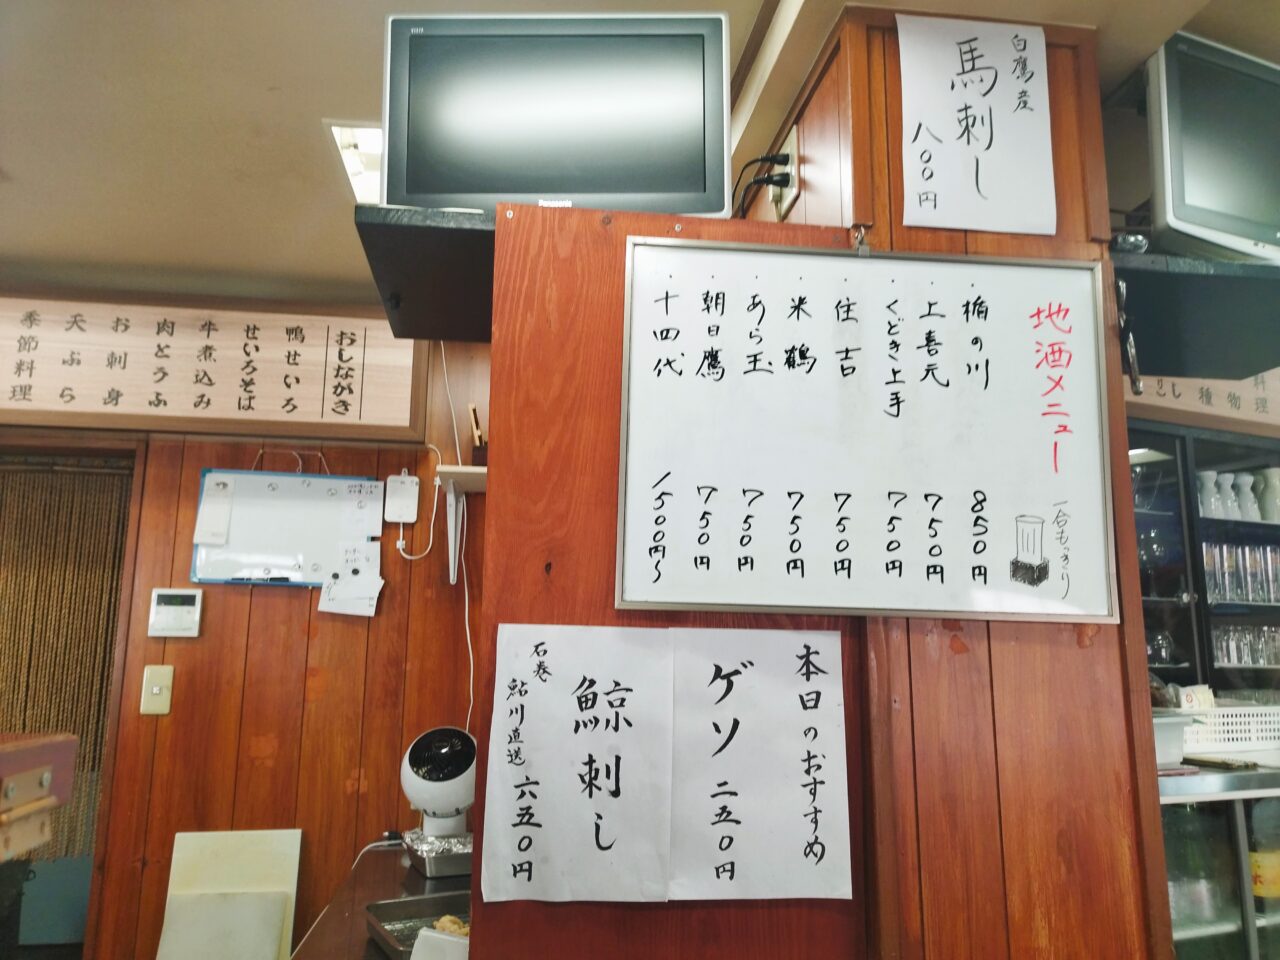 白鷹産
馬刺し
八〇〇円
Panasonic
地酒メニュー
一合もっきり
・楯の川 850円
・上喜元 750円
・くどき上手 750円
・住吉 750円
・米鶴 750円
・あら玉 750円
・朝日鷹 750円
・十四代 1500円〜
おしながき
鴨せいろ
せいろそば
牛煮込み
肉どうふ
お刺身
天ぷら
季節料理
本日のおすすめ
ゲソ 二五〇円
鯨刺し
石巻
鮎川直送 六五〇円
料理
種物